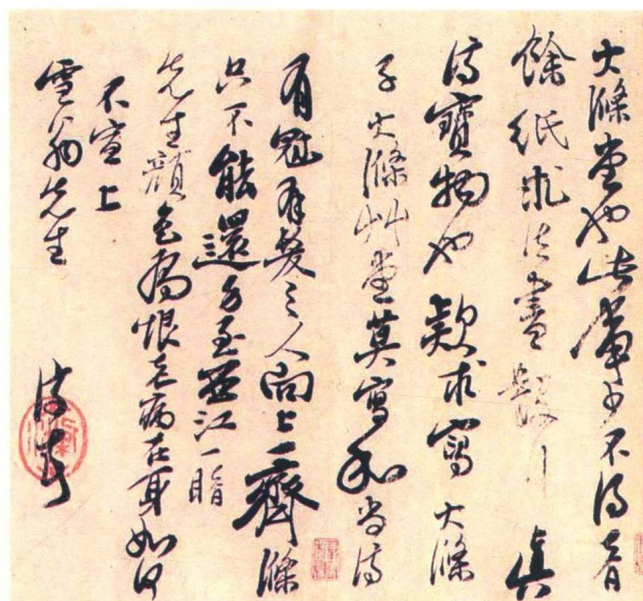 大滌堂也此事少不得者
餘紙求法書數行真
濟寶物也款求寫大滌
子大滌艸堂莫寫和尚濟
有冠有髮之人向上一齊滌
只不能還身至西江一睹
先生顏色為恨老病在身如何
不宣上
雪翁先生
濟頓首